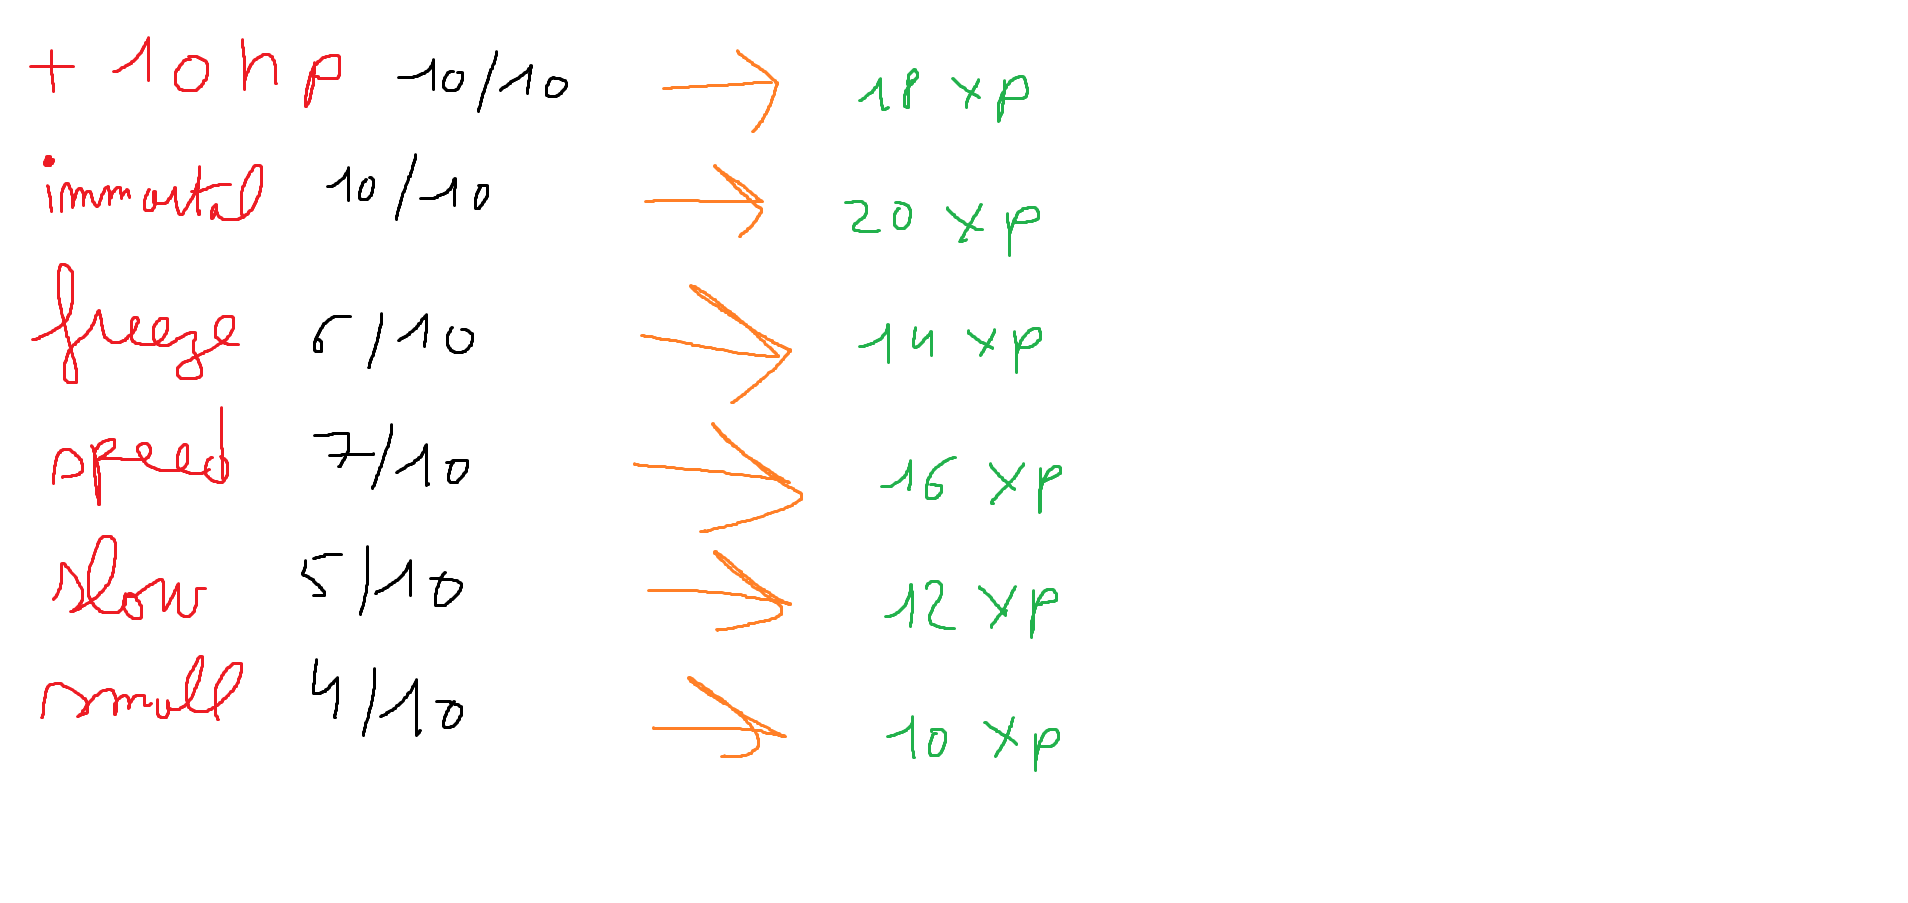 + 10 hp 10/10 → 18 xp
immortal 10/10 → 20 xp
freeze 6/10 → 14 xp
speed 7/10 → 16 xp
slow 5/10 → 12 xp
small 4/10 → 10 xp